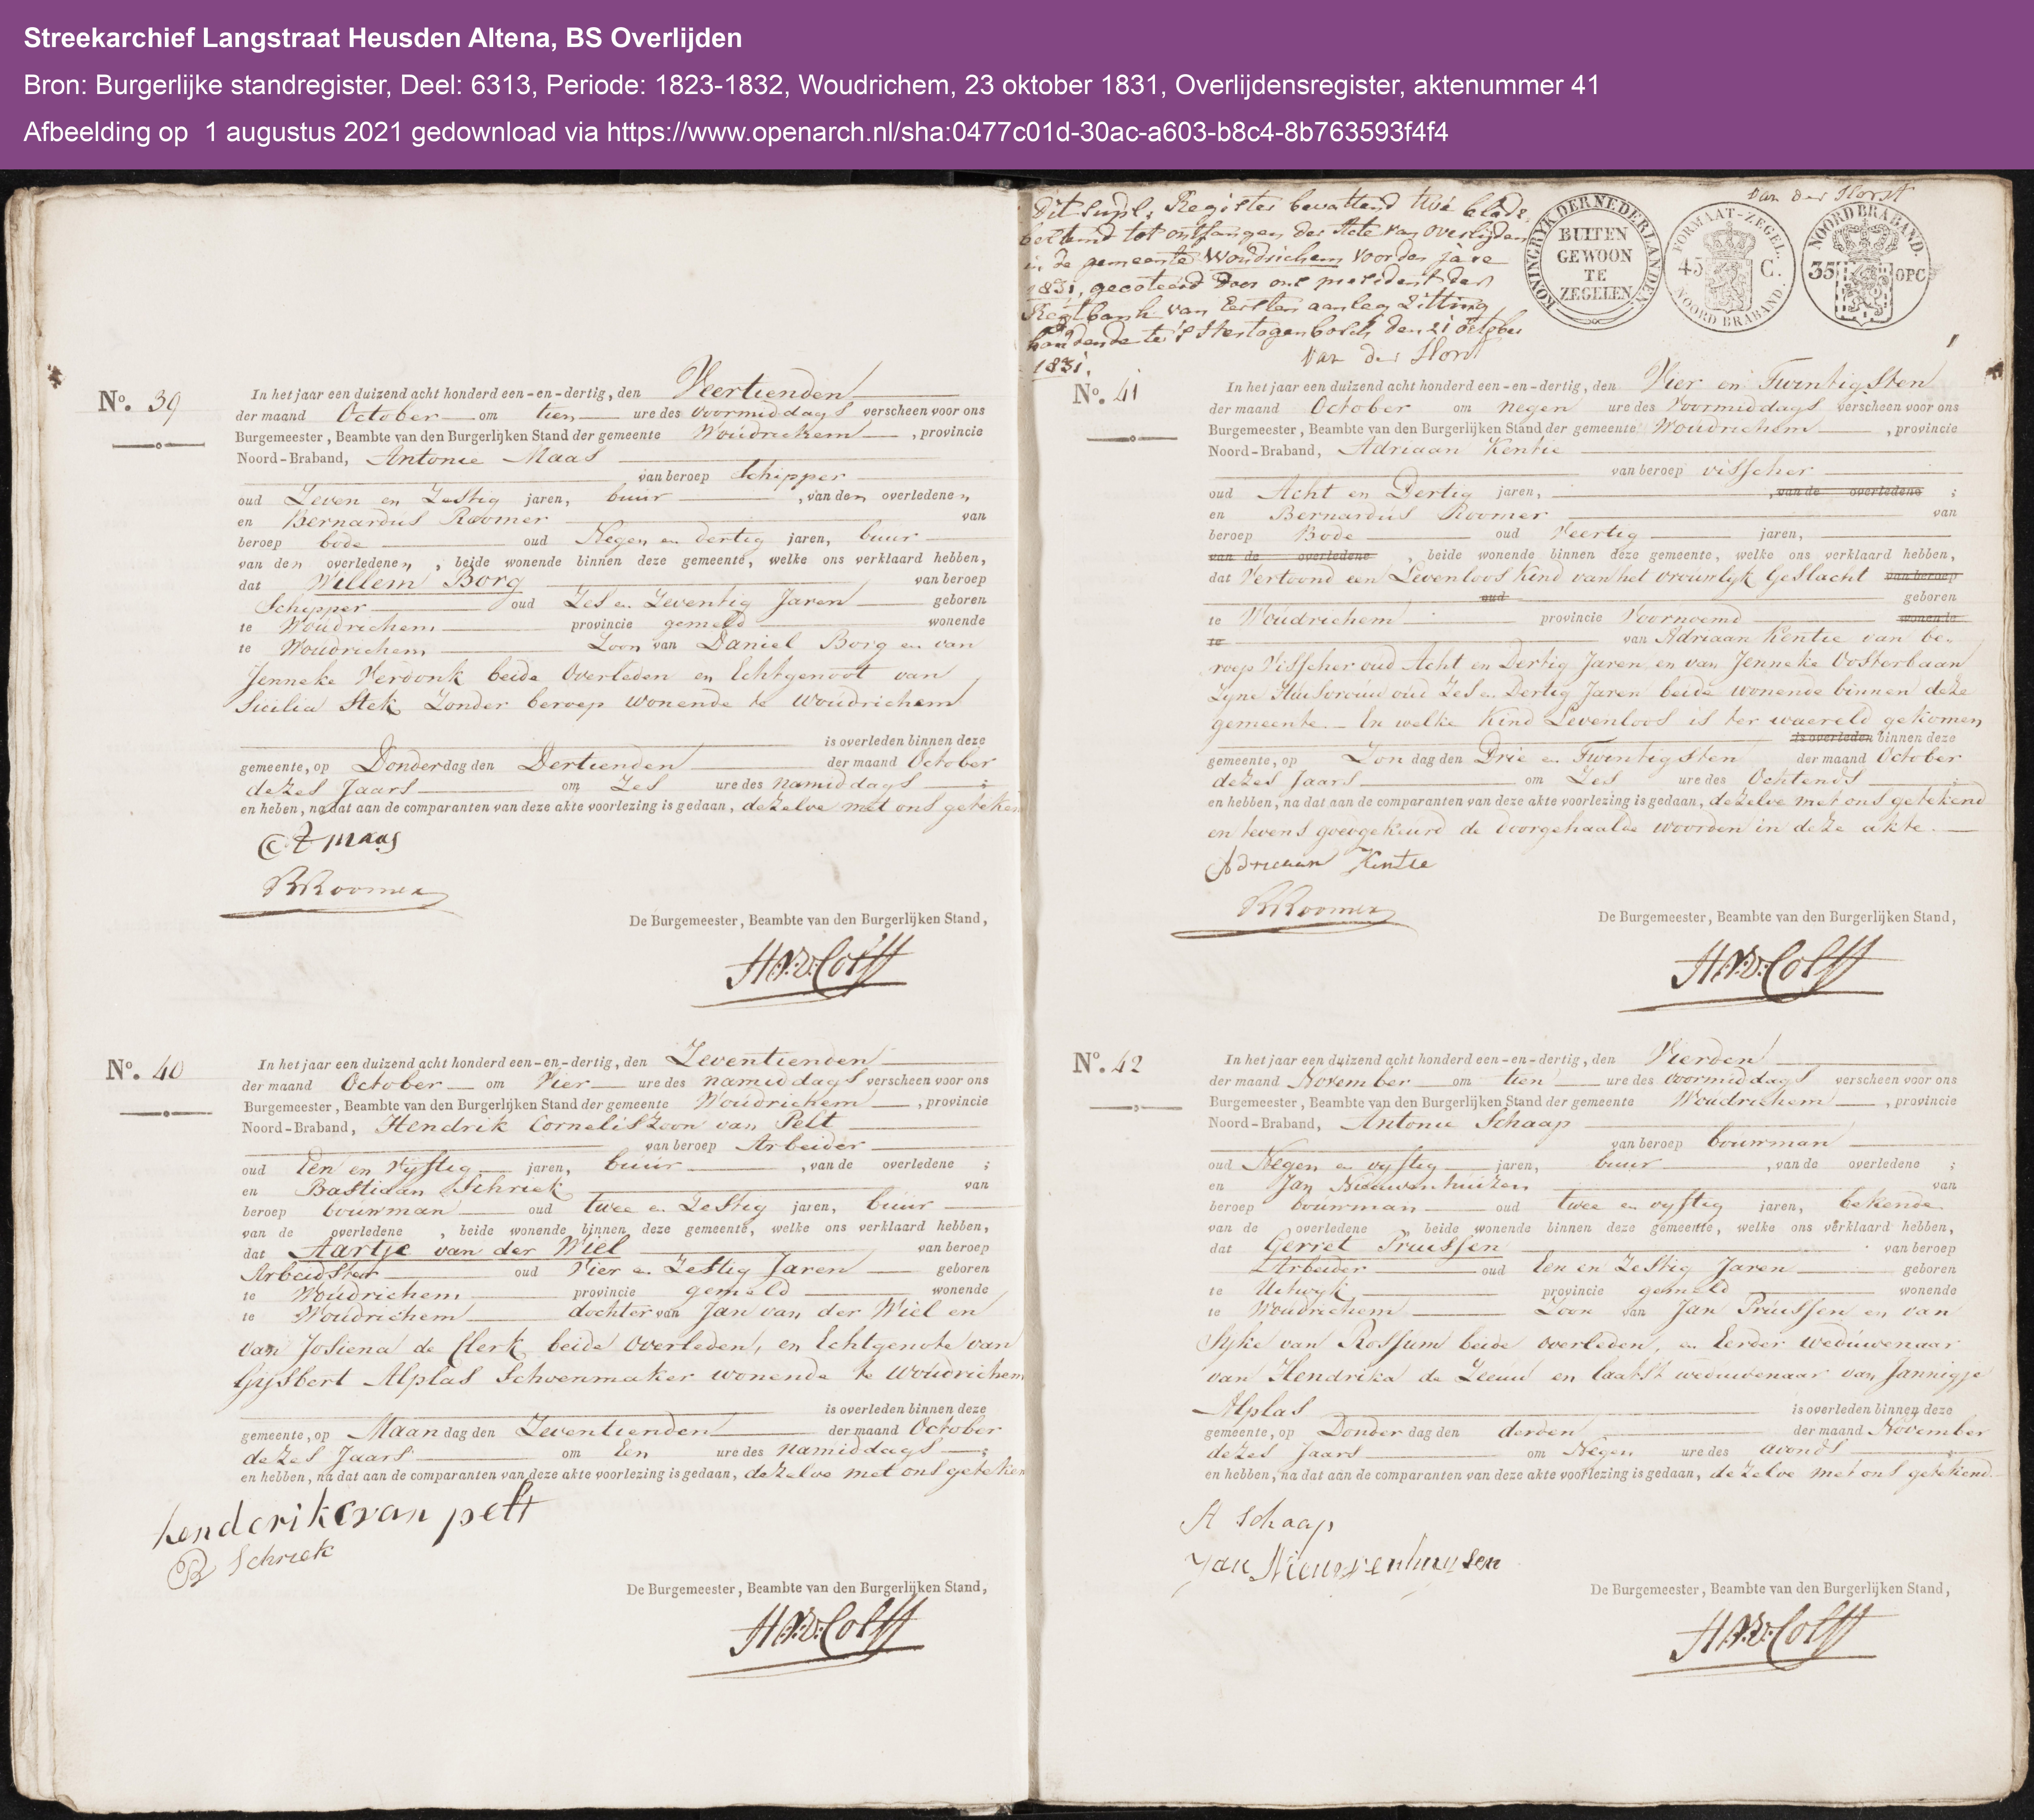 Streekarchief Langstraat Heusden Altena, BS Overlijden
Bron: Burgerlijke standregister, Deel: 6313, Periode: 1823-1832, Woudrichem, 23 oktober 1831, Overlijdensregister, aktenummer 41
Afbeelding op 1 augustus 2021 gedownload via https://www.openarch.nl/sha:0477c01d-30ac-a603-b8c4-8b763593f4f4
No. 39
In het jaar een duizend acht honderd een-en-dertig, den Veertienden
der maand October om tien ure des voormiddags verscheen voor ons
Burgemeester, Beambte van den Burgerlijken Stand der gemeente Woudrichem, provincie
Noord-Braband, Antonie Maas
van beroep Schipper
oud Zeven en Zestig jaren, buur, van den overledenen
en Bernardus Roomer van
beroep bode oud Negen en dertig jaren, buur
van den overledenen, beide wonende binnen deze gemeente, welke ons verklaard hebben,
dat Willem Borg van beroep
Schipper oud Zes en Zeventig Jaren geboren
te Woudrichem provincie gemeld wonende
te Woudrichem Zoon van Daniel Borg en van
Jenneke Verdonk beide Overleden en Echtgenoot van
Sicilia Stek Zonder beroep wonende te Woudrichem
is overleden binnen deze
gemeente, op Donderdag den Dertienden der maand October
dezes Jaars om Zes ure des namiddags ;
en heben, na dat aan de comparanten van deze akte voorlezing is gedaan, dezelve met ons geteken
A Maas
B Roomer
De Burgemeester, Beambte van den Burgerlijken Stand,
No. 40
In het jaar een duizend acht honderd een-en-dertig, den Zeventienden
der maand October om Vier ure des namiddags verscheen voor ons
Burgemeester, Beambte van den Burgerlijken Stand der gemeente Woudrichem, provincie
Noord-Braband, Hendrik Corneliszoon van Pelt
van beroep Arbeider
oud Een en Vyftig jaren, buur, van de overledene ;
en Bastiaan Schriek van
beroep bouwman oud twee en Zestig jaren, buur
van de overledene, beide wonende binnen deze gemeente, welke ons verklaard hebben,
dat Aartje van der Wiel van beroep
Arbeidster oud Vier en Zestig Jaren geboren
te Woudrichem provincie gemeld wonende
te Woudrichem dochter van Jan van der Wiel en
van Josiena de Clerk beide Overleden, en Echtgenote van
Gysbert Alplas Schoenmaker wonende te Woudrichem
is overleden binnen deze
gemeente, op Maandag den Zeventienden der maand October
dezes Jaars om Een ure des namiddags ;
en hebben, na dat aan de comparanten van deze akte voorlezing is gedaan, dezelve met ons geteken
henderik c van pelt
B Schriek
De Burgemeester, Beambte van den Burgerlijken Stand,
Dit supl. Register bevattend twe blade
bestemd tot ontfangen der Acte van Overlyden
in de gemeente Woudrichem voor den jare
1831, gecoteerd door ons president der
Regtbank van Eersten aanleg Zitting
houdende te 's Hertogenbosch den 21 October
1831. Van der Horst
KONINGRYK DER NEDERLANDEN.
BUITEN
GEWOON
TE
ZEGELEN.
FORMAAT-ZEGEL.
45 C.
NOORD BRABAND.
Van der Horst
NOORD BRABAND.
35 OPC
1
No. 41
In het jaar een duizend acht honderd een-en-dertig, den Vier en Twintigsten
der maand October om negen ure des Voormiddags verscheen voor ons
Burgemeester, Beambte van den Burgerlijken Stand der gemeente Woudrichem, provincie
Noord-Braband, Adriaan Kentie
van beroep visscher
oud Acht en Dertig jaren, van de overledene ;
en Bernardus Roomer van
beroep Bode oud Veertig jaren,
van de overledene, beide wonende binnen deze gemeente, welke ons verklaard hebben,
dat Vertoond een Levenloos Kind van het vrouwlyk Geslacht van beroep
oud geboren
te Woudrichem provincie Voornoemd wonende
te van Adriaan Kentie van be-
roep Visscher oud Acht en Dertig Jaren en van Jenneke Oosterbaan
Zyne Huisvrouw oud Zes en Dertig Jaren beide wonende binnen deze
gemeente. En welke Kind Levenloos is ter waereld gekomen
is overleden binnen deze
gemeente, op Zondag den Drie en Twintigsten der maand October
dezes Jaars om Zes ure des Ochtends ;
en hebben, na dat aan de comparanten van deze akte voorlezing is gedaan, dezelve met ons getekend
en tevens goedgekeurd de doorgehaalde woorden in deze akte.
Adriaan Kentie
B Roomer
De Burgemeester, Beambte van den Burgerlijken Stand,
No. 42
In het jaar een duizend acht honderd een-en-dertig, den Vierden
der maand November om tien ure des voormiddags verscheen voor ons
Burgemeester, Beambte van den Burgerlijken Stand der gemeente Woudrichem, provincie
Noord-Braband, Antonie Schaap
van beroep bouwman
oud Negen en vyftig jaren, buur, van de overledene ;
en Jan Nieuwenhuizen van
beroep bouwman oud twee en vyftig jaren, bekende
van de overledene beide wonende binnen deze gemeente, welke ons verklaard hebben,
dat Gerret Pruissen van beroep
Arbeider oud Een en Zestig Jaren geboren
te Uitwyk provincie gemeld wonende
te Woudrichem Zoon van Jan Pruissen en van
Syke van Rossum beide overleden, en Eerder weduwenaar
van Hendrika de Leeuw en laatst weduwenaar van Jannigje
Alplas is overleden binnen deze
gemeente, op Donderdag den derden der maand November
dezes Jaars om Negen ure des avonds ;
en hebben, na dat aan de comparanten van deze akte voorlezing is gedaan, dezelve met ons getekend
A Schaap
Jan Nieuwenhuysen
De Burgemeester, Beambte van den Burgerlijken Stand,